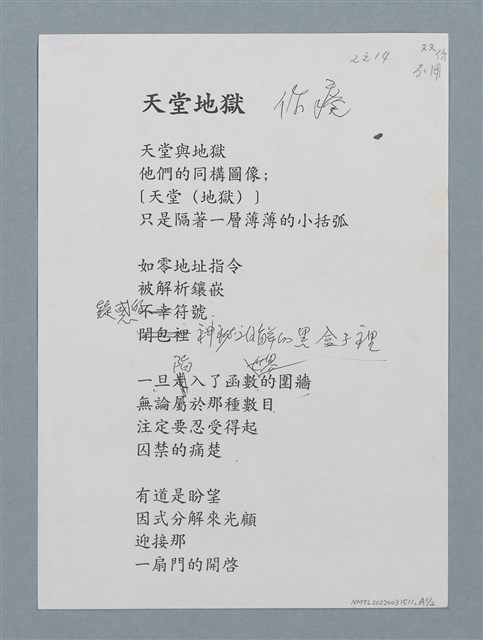 2214
双份
不用
天堂地獄
天堂與地獄
他們的同構圖像；
〔天堂（地獄）〕
只是隔著一層薄薄的小括弧
如零地址指令
被解析鑲嵌
疑惑的
不幸符號
閉包裡 神秘的黑盒子裡
陷 世界
一旦入了函數的圍牆
無論屬於那種數目
注定要忍受得起
囚禁的痛楚
有道是盼望
因式分解來光顧
迎接那
一扇門的開啓
NMTL20220031511.A1/2